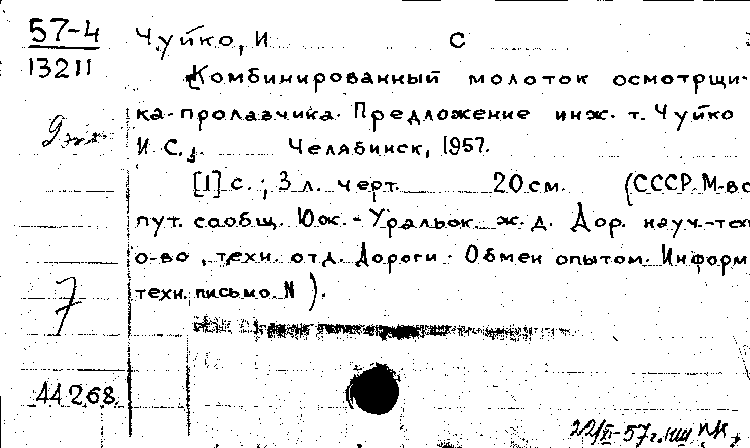 57-4
13211
Чуйко, И С
Комбинированный молоток осмотрщи-
ка-пролазчика. Предложение инж. т. Чуйко
И. С.
Челябинск, 1957.
[1] с.; 3 л. черт. 20 см. (СССР. М-во
пут. сообщ. Юж.-Уральск. ж. д. Дор. науч.-техн
о-во, техн. отд. Дороги. Обмен опытом. Информ
техн. письмо N ).
7
44268